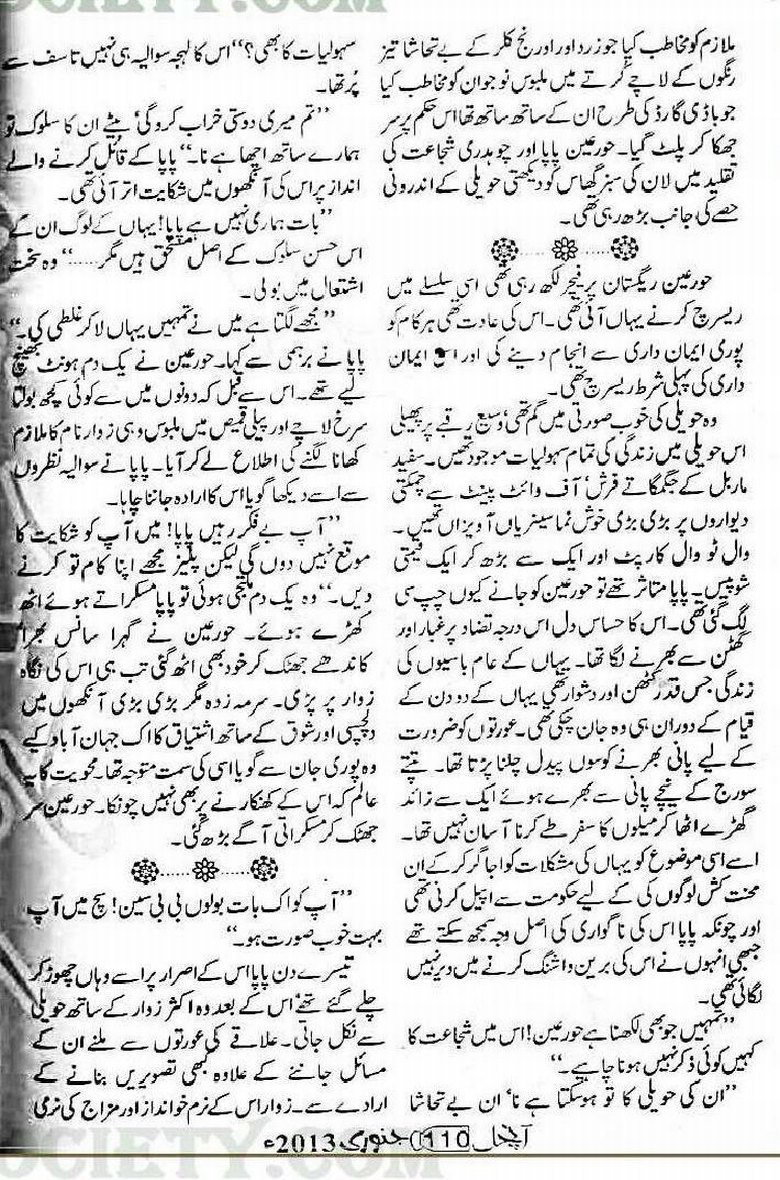 ملازم کو مخاطب کیا جو زرد اور اورنج کلر کے بے تحاشا تیز
رنگوں کے لاچے کُرتے میں ملبوس نوجوان کو مخاطب کیا
جو باڈی گارڈ کی طرح ان کے ساتھ ساتھ تھا اس حکم پر سر
جھکا کر پلٹ گیا۔ حورعین پاپا اور چوہدری شجاعت کی
تقلید میں لان کی سبز گھاس کو دیکھتی حویلی کے اندرونی
حصے کی جانب بڑھ رہی تھی۔
حورعین ریگستان پر فیچر لکھ رہی تھی اسی سلسلے میں
ریسرچ کرنے یہاں آئی تھی۔ اس کی عادت تھی ہر کام کو
پوری ایمان داری سے انجام دینے کی اور اس ایمان
داری کی پہلی شرط ریسرچ تھی۔
وہ حویلی کی خوب صورتی میں گم تھی، وسیع رقبے پر پھیلی
اس حویلی میں زندگی کی تمام سہولیات موجود تھیں۔ سفید
ماربل کے جگمگاتے فرش، آف وائٹ پینٹ سے چمکتی
دیواروں پر بڑی بڑی خوش نما سینریاں آویزاں تھیں۔
وال ٹو وال کارپٹ اور ایک سے بڑھ کر ایک قیمتی
شوپیس۔ پاپا متاثر تھے تو حورعین کو جانے کیوں چپ سی
لگ گئی تھی۔ اس کا حساس دل اس درجہ تضاد پر غبار اور
گھٹن سے بھرنے لگا تھا۔ یہاں کے عام باسیوں کی
زندگی جس قدر کٹھن اور دشوار تھی یہاں کے دو دن کے
قیام کے دوران ہی وہ جان چکی تھی۔ عورتوں کو ضرورت
کے لیے پانی بھرنے کو میلوں پیدل چلنا پڑتا تھا۔ تپتے
سورج کے نیچے پانی سے بھرے ہوئے ایک سے زائد
گھڑے اٹھا کر میلوں کا سفر طے کرنا آسان نہیں تھا۔
اسے اسی موضوع کو یہاں کی مشکلات کو اجاگر کر کے ان
محنت کش لوگوں کی کے لیے حکومت سے اپیل کرنی تھی
اور چونکہ پاپا اس کی ناگواری کی اصل وجہ سمجھ سکتے تھے
جبھی انہوں نے اس کی برین واشنگ کرنے میں دیر نہیں
لگائی تھی۔
”تمہیں جو بھی لکھنا ہے حورعین! اس میں شجاعت کا
کہیں کوئی ذکر نہیں ہونا چاہیے۔“
”ان کی حویلی کا تو ہوسکتا ہے نا، ان بے تحاشا
سہولیات کا بھی؟“ اس کا لہجہ سوالیہ ہی نہیں تاسف سے
پُر تھا۔
”تم میری دوستی خراب کرو گی، بیٹے ان کا سلوک تو
ہمارے ساتھ اچھا ہے نا۔“ پاپا کے قائل کرنے والے
انداز پر اس کی آنکھوں میں شکایت اتر آئی تھی۔
”بات ہماری نہیں ہے پاپا! یہاں کے لوگ ان کے
اس حسن سلوک کے اصل مستحق ہیں مگر.....“ وہ سخت
اشتعال میں بولی۔
”مجھے لگتا ہے میں نے تمہیں یہاں لا کر غلطی کی۔“
پاپا نے برہمی سے کہا۔ حورعین نے یک دم ہونٹ بھینچ
لیے تھے۔ اس سے قبل کہ دونوں میں سے کوئی کچھ بولتا
سرخ لاچے اور پیلی قمیص میں ملبوس وہی زوار نام کا ملازم
کھانا لگنے کی اطلاع لے کر آیا۔ پاپا نے سوالیہ نظروں
سے اسے دیکھا گویا اس کا ارادہ جاننا چاہا۔
”آپ بے فکر رہیں پاپا! میں آپ کو شکایت کا
موقع نہیں دوں گی لیکن پلیز مجھے اپنا کام تو کرنے
دیں۔“ وہ یک دم ملتجی ہوئی تو پاپا مسکراتے ہوئے اٹھ
کھڑے ہوئے۔ حورعین نے گہرا سانس بھرا
کاندھے جھٹک کر خود بھی اٹھ گئی تب ہی اس کی نگاہ
زوار پر پڑی۔ سرمہ زدہ مگر بڑی بڑی آنکھوں میں
دلچسپی اور شوق کے ساتھ اشتیاق کا اک جہان آباد کیے
وہ پوری جان سے گویا اسی کی سمت متوجہ تھا۔ محویت کا یہ
عالم کہ اس کے کھنکارنے پر بھی نہیں چونکا۔ حورعین سر
جھٹک کر مسکراتی آگے بڑھ گئی۔
”آپ کو اک بات بولوں بی بی سین! سچ میں آپ
بہت خوب صورت ہو۔“
تیسرے دن پاپا اس کے اصرار پر اسے وہاں چھوڑ کر
چلے گئے تھے، اس کے بعد وہ اکثر زوار کے ساتھ حویلی
سے نکل جاتی۔ علاقے کی عورتوں سے ملنے ان کے
مسائل جاننے کے علاوہ کبھی تصویریں بنانے کے
ارادے سے۔ زوار اس کے نرم خو انداز اور مزاج کی نرمی
آنچل 110 جنوری 2013ء
SOCIETY.COM